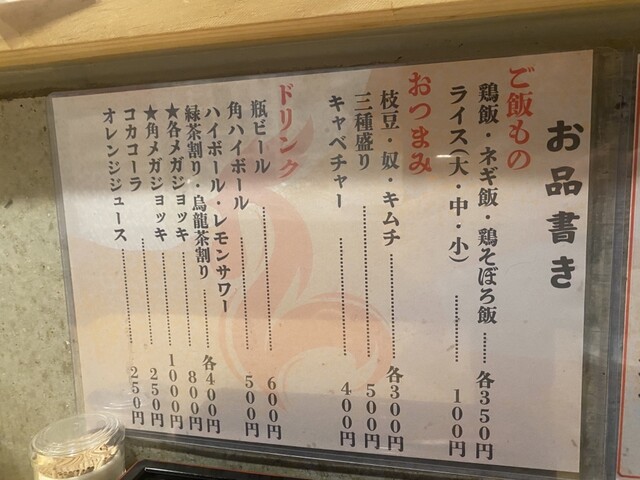 お品書き
ご飯もの
鶏飯・ネギ飯・鶏そぼろ飯……各350円
ライス（大・中・小）…………100円
おつまみ
枝豆・奴・キムチ…………各300円
三種盛り…………500円
キャベチャー…………400円
ドリンク
瓶ビール…………600円
角ハイボール…………500円
ハイボール・レモンサワー
緑茶割り・烏龍茶割り……各400円
★各メガジョッキ…………800円
★角メガジョッキ…………1000円
コカコーラ…………250円
オレンジジュース…………250円